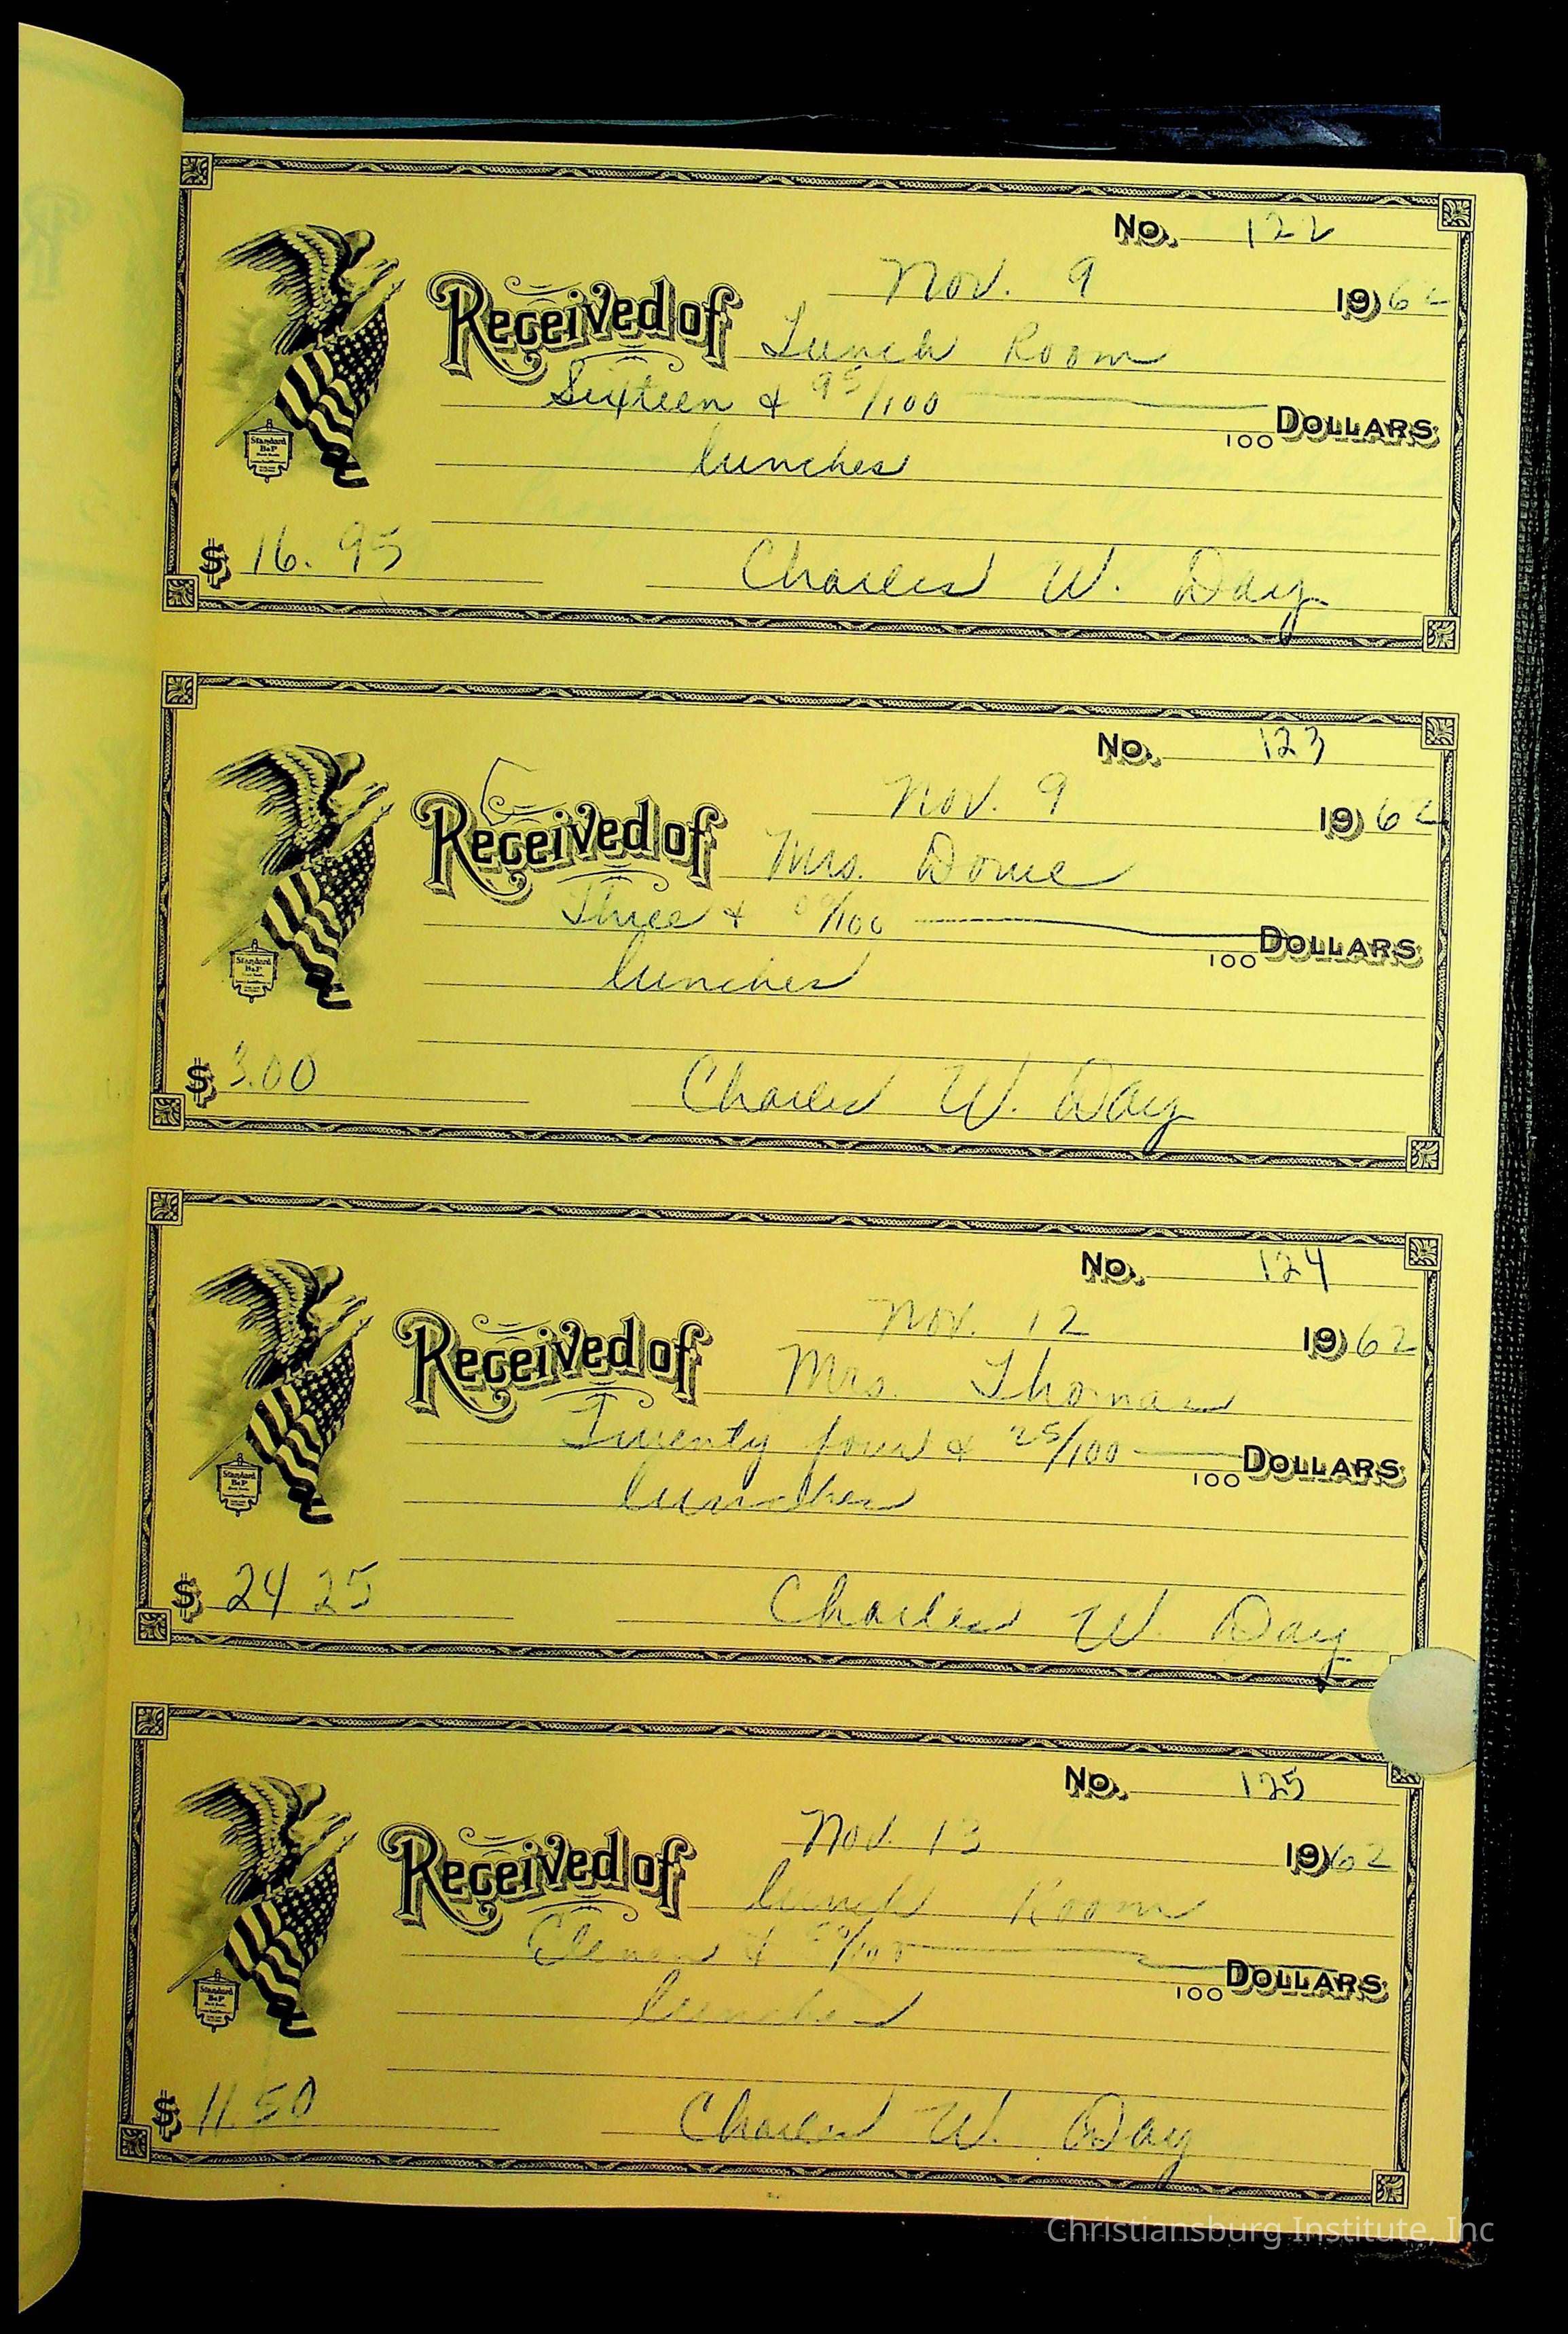 No. 122
Nov. 9 1962
Received of Lunch Room
Sixteen & 95/100 100 DOLLARS
lunches
$ 16.95 Charles W. Day
Standard B&P
No. 123
Nov. 9 1962
Received of Mrs. Dowe
Three & 00/100 100 DOLLARS
lunches
$ 3.00 Charles W. Day
Standard B&P
No. 124
Nov. 12 1962
Received of Mrs. Thomas
Twenty four & 25/100 100 DOLLARS
lunches
$ 24 25 Charles W. Day
Standard B&P
No. 125
Nov. 13 1962
Received of lunch Room
Eleven & 50/100 100 DOLLARS
lunches
$ 11.50 Charles W. Day
Standard B&P
Christiansburg Institute, Inc